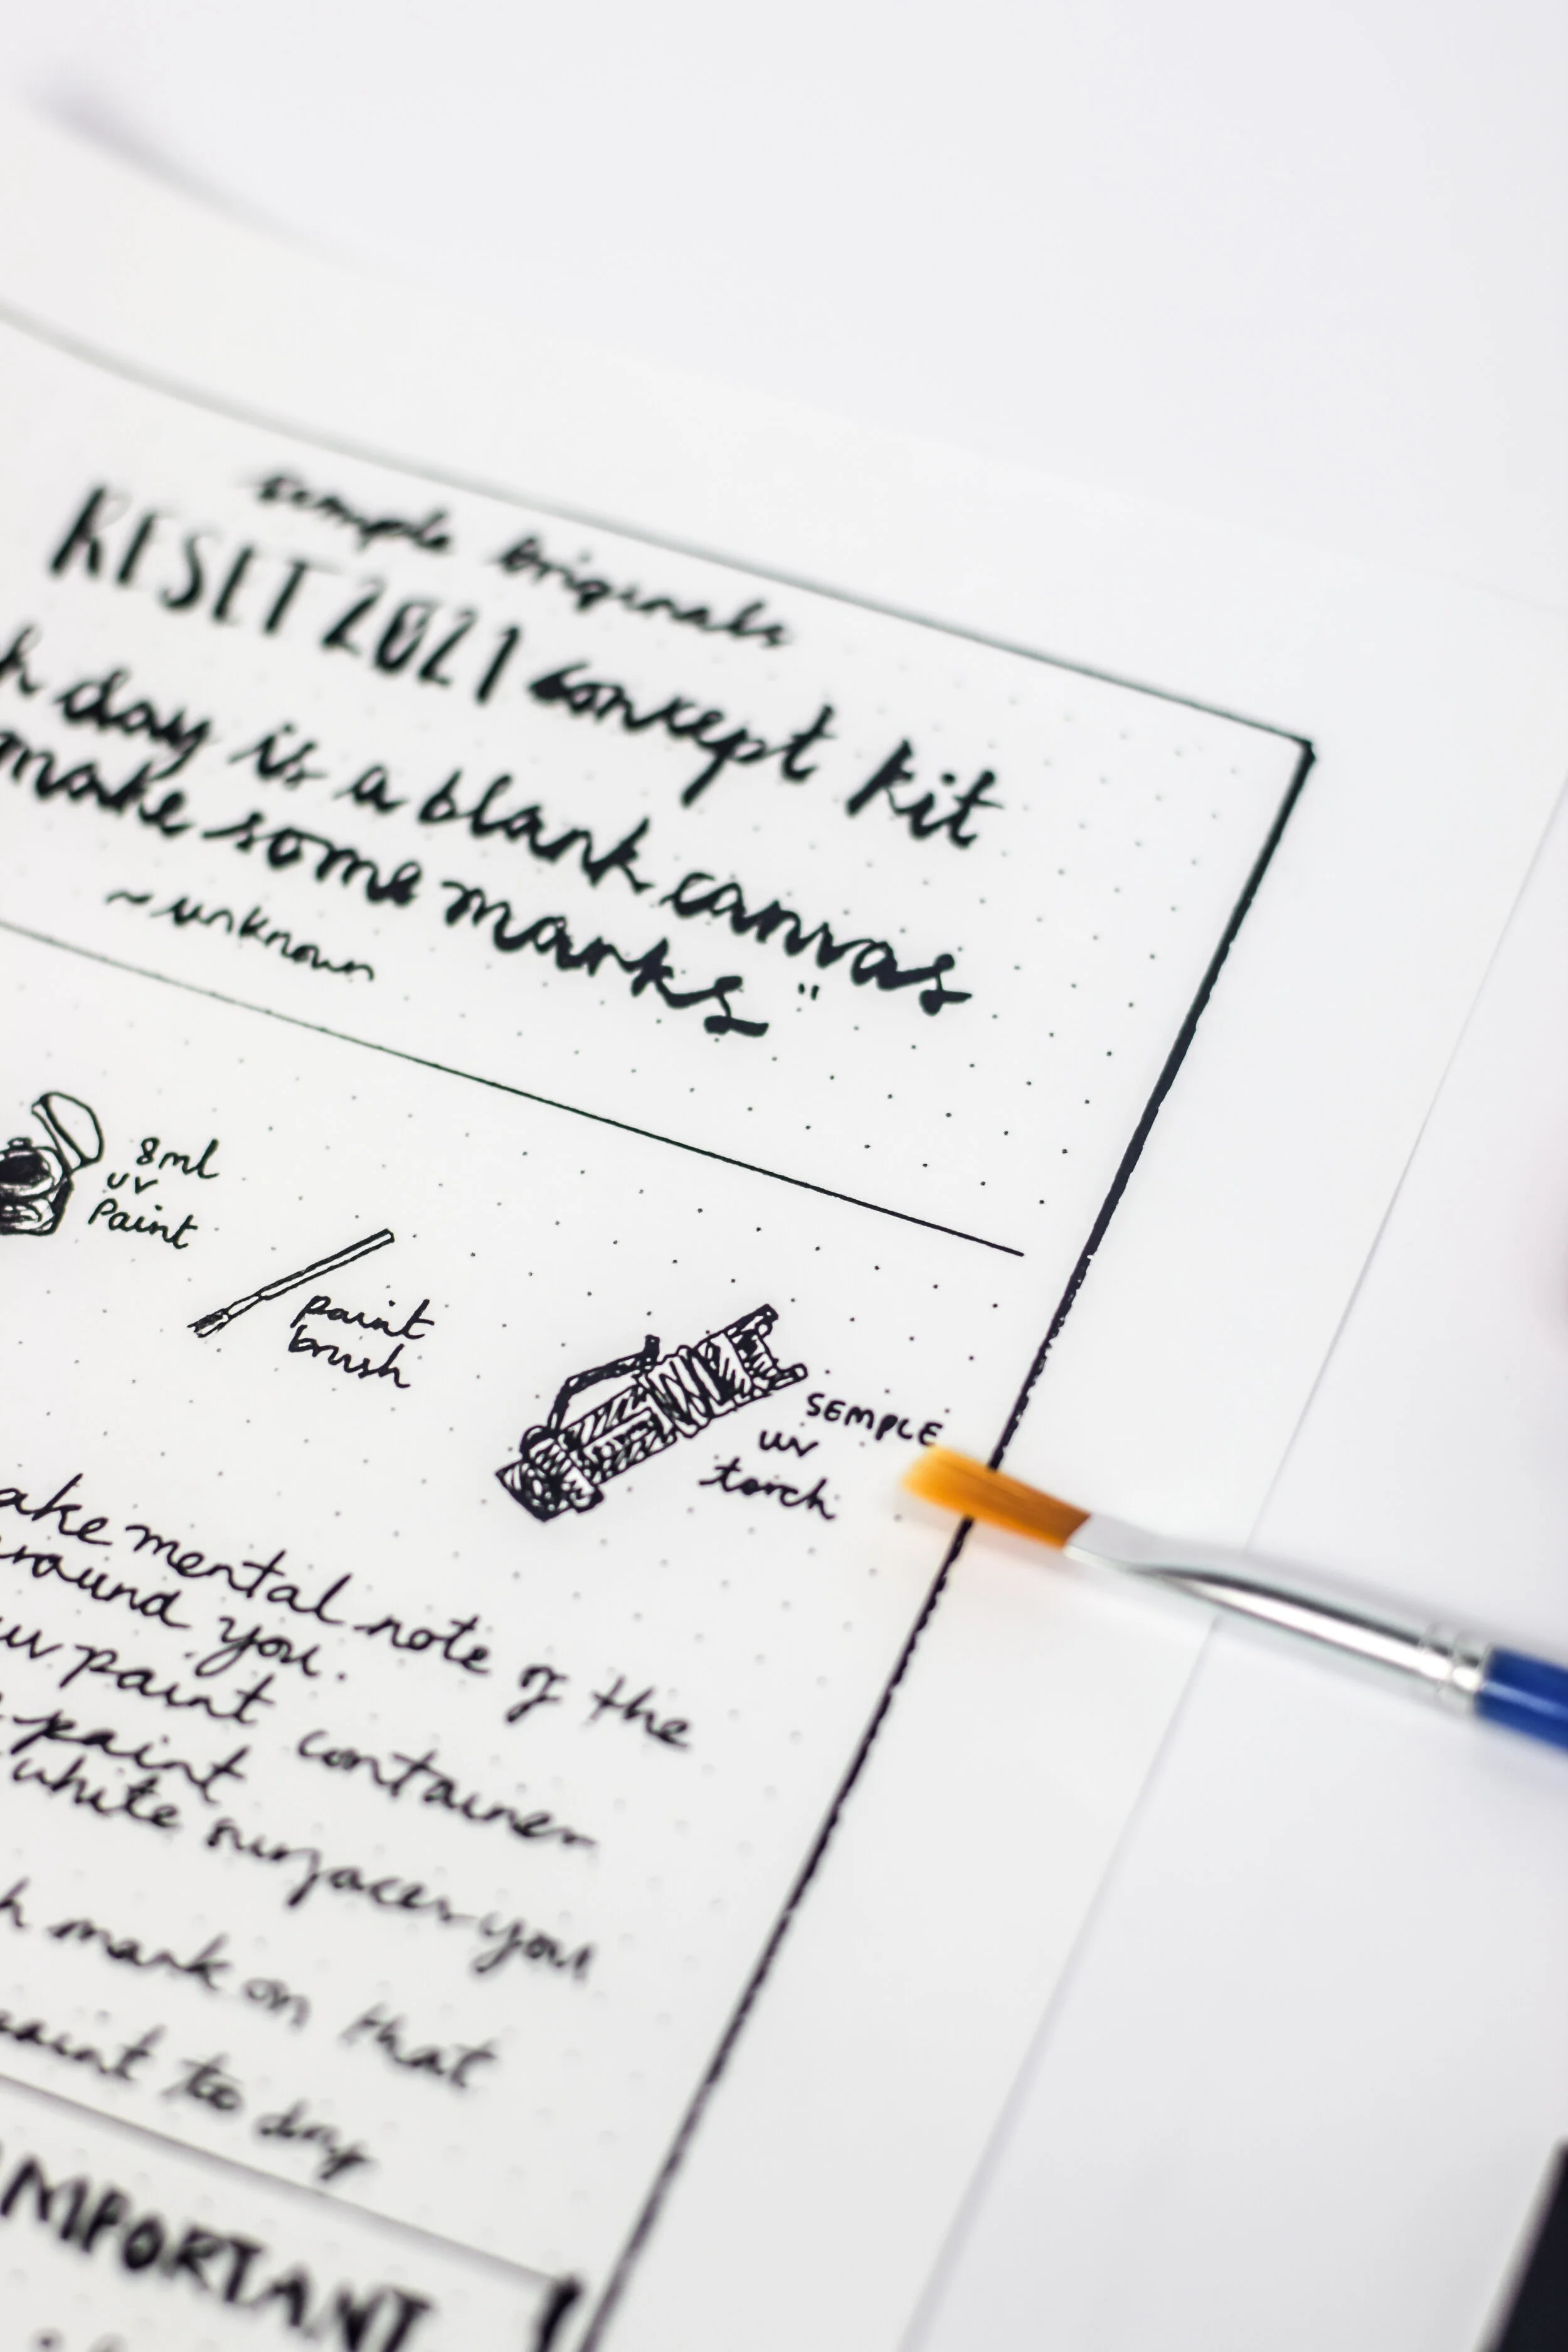 semple originals
RESET 2021 concept kit
h day is a blank canvas
make some marks"
~unknown
8ml
uv
Paint
paint
brush
SEMPLE
uv
torch
ake mental note of the
round you.
uv paint container
paint
white surfaces you
h mark on that
paint to day
IMPORTANT